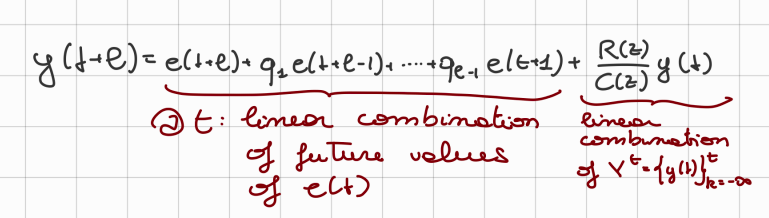 y(t+ℓ) = e(t+ℓ) + q₁ e(t+ℓ-1) + ···· + q_{ℓ-1} e(t+1) + R(z)/C(z) y(t)
@ t: linear combination
of future values
of e(t)
linear
combination
of Y^t = {y(t)}^t_{k=-∞}